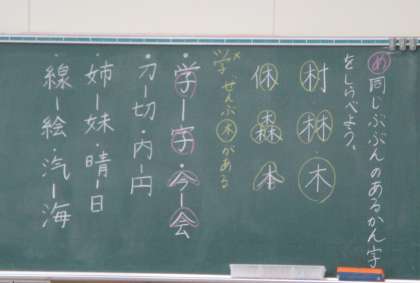 め 同じぶぶんのあるかん字
をしらべよう。
村・林・木
休・森・本
学 ぜんぶ木がある
・学ー字・今ー会
・刀ー切・内ー円
・姉ー妹・晴ー日
・線ー絵・汽ー海